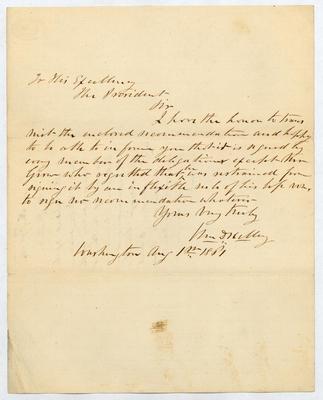 To His Excellency
The President
Sir
I have the honor to trans
mit the enclosed recommendation and happy
to be able to inform you that it is signed by
every member of the delegation except Mr
Grow who regretted that was restrained from
signing it by an inflexible rule of his
to sign no recommendation whatever
Yours Very truly
Wm D Kelley
Washington Aug 1st 1861